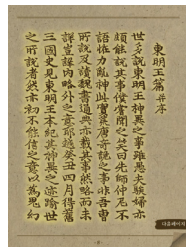 東明王篇 并序
世多說東明王神異之事雖愚夫騃婦亦
頗能說其事僕嘗聞之笑曰先師仲尼不
語怪力亂神此實荒唐奇詭之事非吾曹
所說及讀魏書通典亦載其事然略而未
詳豈詳內略外之意耶越癸丑四月得舊
三國史見東明王本紀其神異之迹踰世
之所說者然亦初不能信之意以爲鬼幻
다음페이지